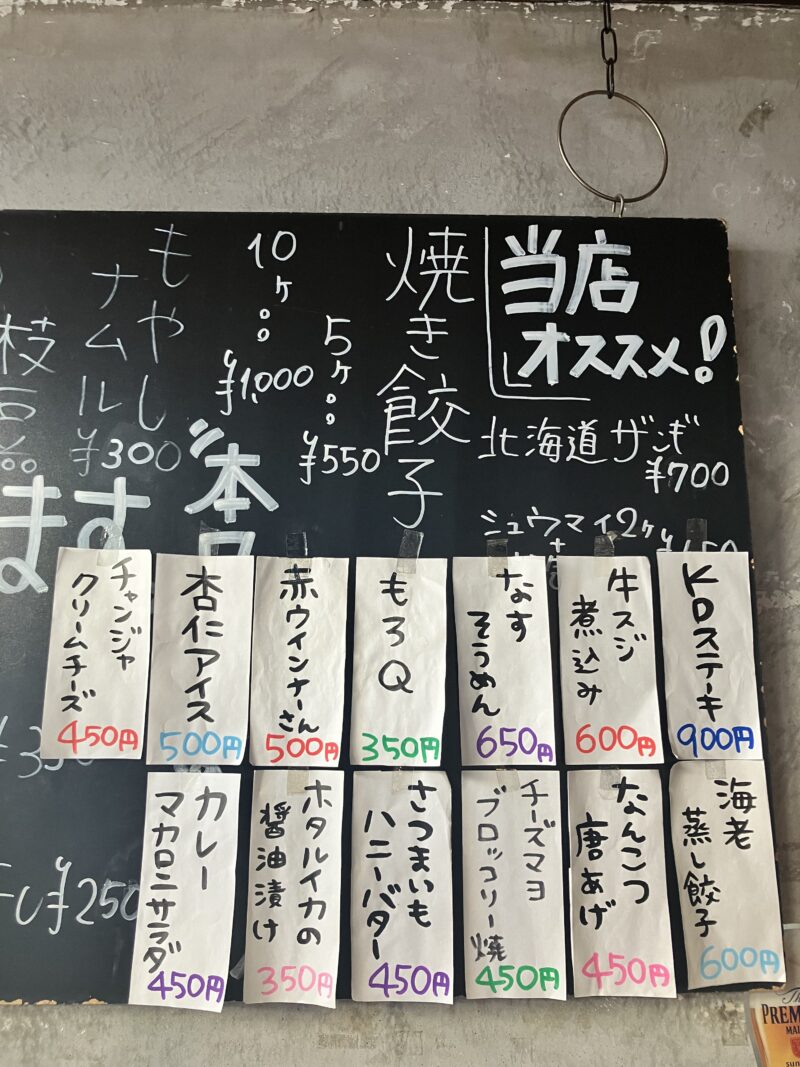 当店
オススメ!
北海道ザンギ
¥700
シュウマイ2ヶ
焼き餃子
5ヶ
¥550
10ヶ
¥1,000
本
もやし
ナムル
¥300
枝
ます
¥250
KDステーキ
900円
牛スジ
煮込み
600円
なす
そうめん
650円
もろQ
350円
赤ウインナーさん
500円
杏仁アイス
500円
チャンジャ
クリームチーズ
450円
海老
蒸し餃子
600円
なんこつ
唐あげ
450円
チーズマヨ
ブロッコリー焼
450円
さつまいも
ハニーバター
450円
ホタルイカの
醤油漬け
350円
カレー
マカロニサラダ
450円